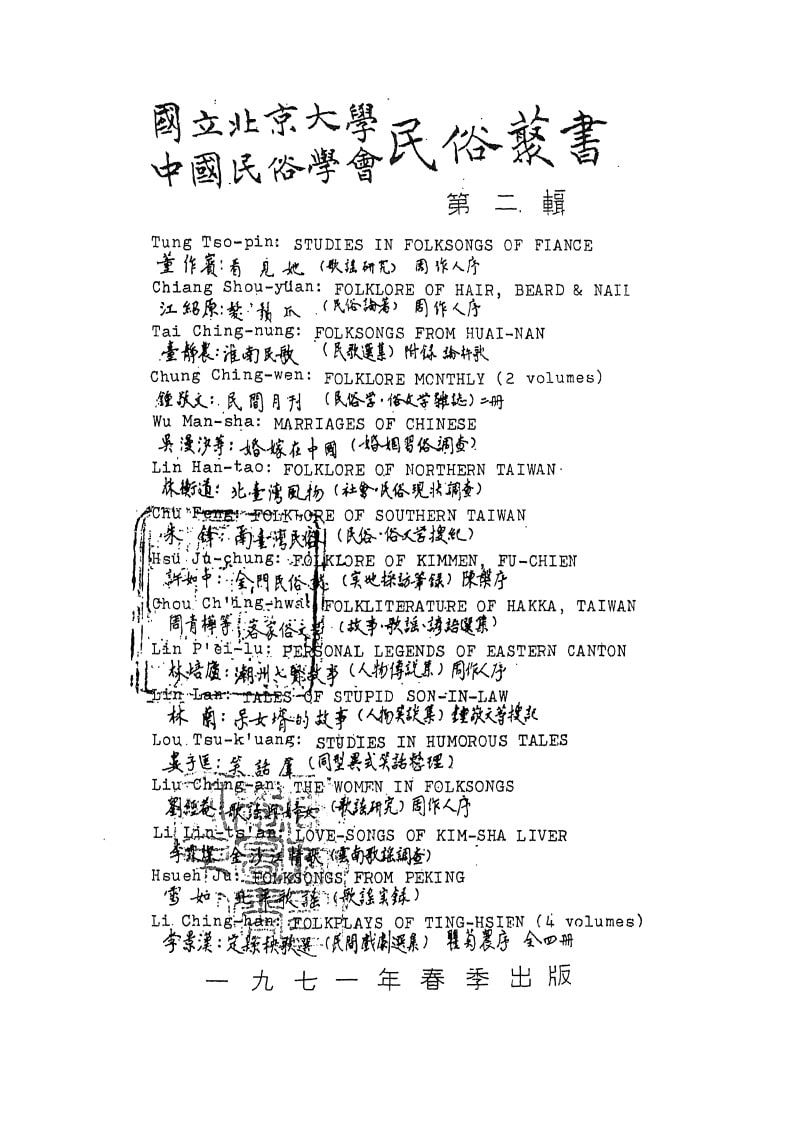 國立北京大學
中國民俗學會 民俗叢書
第二輯
Tung Tso-pin: STUDIES IN FOLKSONGS OF FIANCE
董作賓:看見她 (歌謠研究) 周作人序
Chiang Shou-yüan: FOLKLORE OF HAIR, BEARD & NAIL
江紹原:髮鬚爪 (民俗論著) 周作人序
Tai Ching-nung: FOLKSONGS FROM HUAI-NAN
臺靜農:淮南民歌 (民歌選集) 附錄 論杵歌
Chung Ching-wen: FOLKLORE MONTHLY (2 volumes)
鍾敬文:民間月刊 (民俗学·俗文学雜誌)二册
Wu Man-sha: MARRIAGES OF CHINESE
吳漫沙等:婚嫁在中國 (婚姻習俗調查)
Lin Han-tao: FOLKLORE OF NORTHERN TAIWAN
林衡道:北臺灣風物 (社會·民俗現狀調查)
Chu Feng: FOLKLORE OF SOUTHERN TAIWAN
朱 鋒:南臺灣民俗 (民俗·俗文苔搜紀)
Hsü Ju-chung: FOLKLORE OF KIMMEN, FU-CHIEN
許如中:金門民俗誌 (实地採訪筆錄) 陳傑序
Chou Ch'ing-hwa: FOLKLITERATURE OF HAKKA, TAIWAN
周青樺等:客家俗文學 (故事·歌謠·諺語選集)
Lin P'ei-lu: PERSONAL LEGENDS OF EASTERN CANTON
林培廬:潮州七賢故事 (人物傳說集) 周作人序
Lin Lan: TALES OF STUPID SON-IN-LAW
林 蘭:呆女壻的故事 (人物笑談集) 鍾敬文等搜記
Lou Tsu-k'uang: STUDIES IN HUMOROUS TALES
婁子匡:笑話羣 (同型異式笑話整理)
Liu Ching-an: THE WOMEN IN FOLKSONGS
劉經菴:歌謠與婦女 (歌謠研究) 周作人序
Li Lin-ts'an: LOVE-SONGS OF KIM-SHA LIVER
李霖燦:金沙江情歌 (雲南歌謠調查)
Hsueh Ju: FOLKSONGS FROM PEKING
雪 如:北平歌謠 (歌謠实錄)
Li Ching-han: FOLKPLAYS OF TING-HSIEN (4 volumes)
李景漢:定縣秧歌選 (民間戲劇選集) 瞿菊農序 全四册
一九七一年春季出版